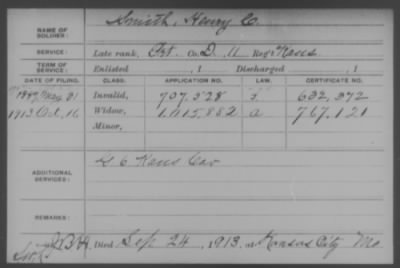 NAME OF SOLDIER: Smith, Henry C.
SERVICE: Late rank, Pvt. Co. D, 11 Reg't Kans
TERM OF SERVICE: Enlisted , 1 Discharged , 1
DATE OF FILING. CLASS. APPLICATION NO. LAW. CERTIFICATE NO.
1889, May, 31 Invalid, 707,328 632,372
1913 Oct, 16 Widow, 1,015,882 a 767,121
Minor,
ADDITIONAL SERVICES: G 6 Kans Cav
REMARKS:
Died Sep 24, 1913, at Kansas City Mo